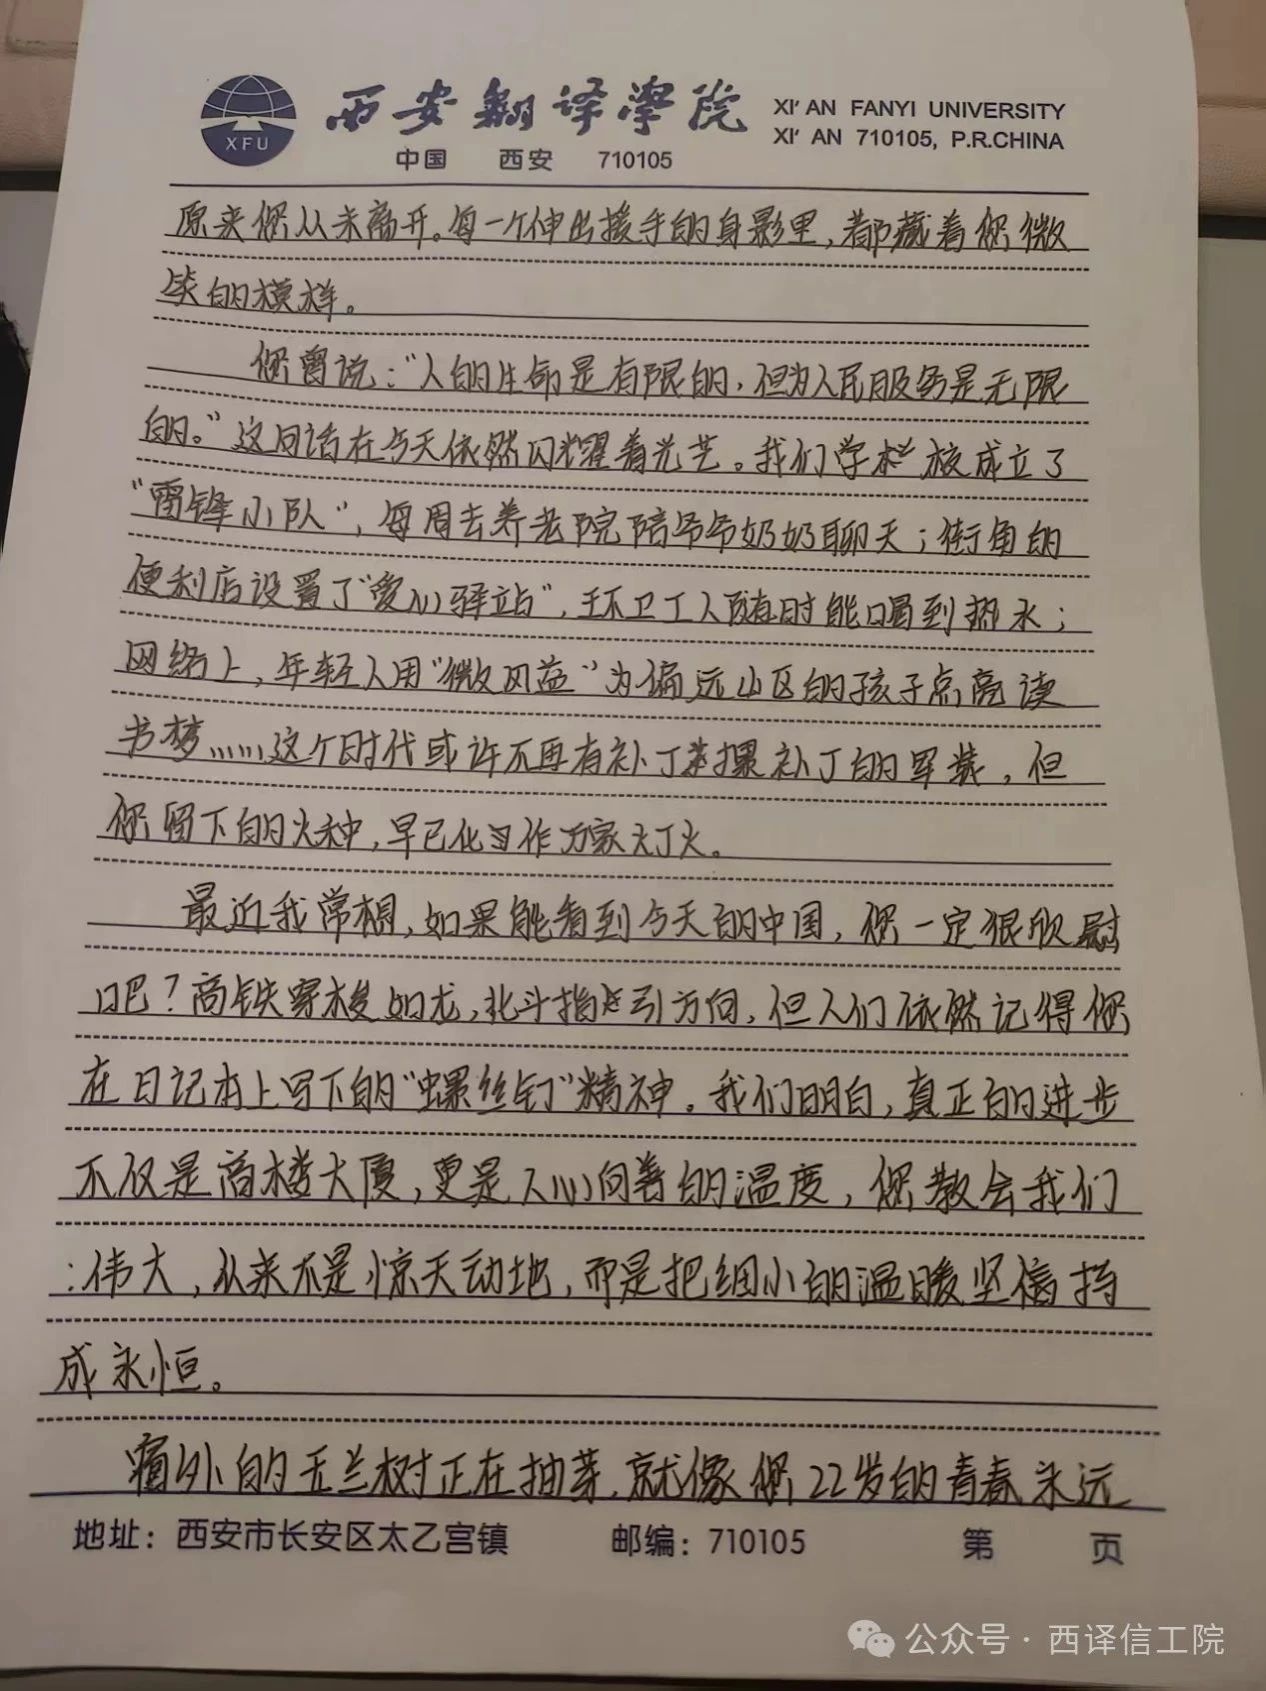 XFU
西安翻译学院
中国 西安 710105
XI' AN FANYI UNIVERSITY
XI' AN 710105, P.R.CHINA
原来您从未离开。每一个伸出援手的身影里，都藏着您微
笑的模样。
您曾说：“人的生命是有限的，但为人民服务是无限
的。”这句话在今天依然闪耀着光芒。我们学校成立了
“雷锋小队”，每周去养老院陪爷爷奶奶聊天；街角的
便利店设置了“爱心驿站”，环卫工人随时能喝到热水；
网络上，年轻人用“微风益”为偏远山区的孩子点亮读
书梦……这个时代或许不再有补丁摞补丁的军装，但
您留下的火种，早已化作万家灯火。
最近我常想，如果能看到今天的中国，您一定很欣慰
吧？高铁穿梭如龙，北斗指引方向，但人们依然记得您
在日记本上写下的“螺丝钉”精神。我们明白，真正的进步
不仅是高楼大厦，更是人心向善的温度，您教会我们
：伟大，从来不是惊天动地，而是把细小的温暖坚持
成永恒。
窗外的玉兰树正在抽芽，就像您22岁的青春永远
地址：西安市长安区太乙宫镇 邮编：710105 第 页
公众号·西译信工院